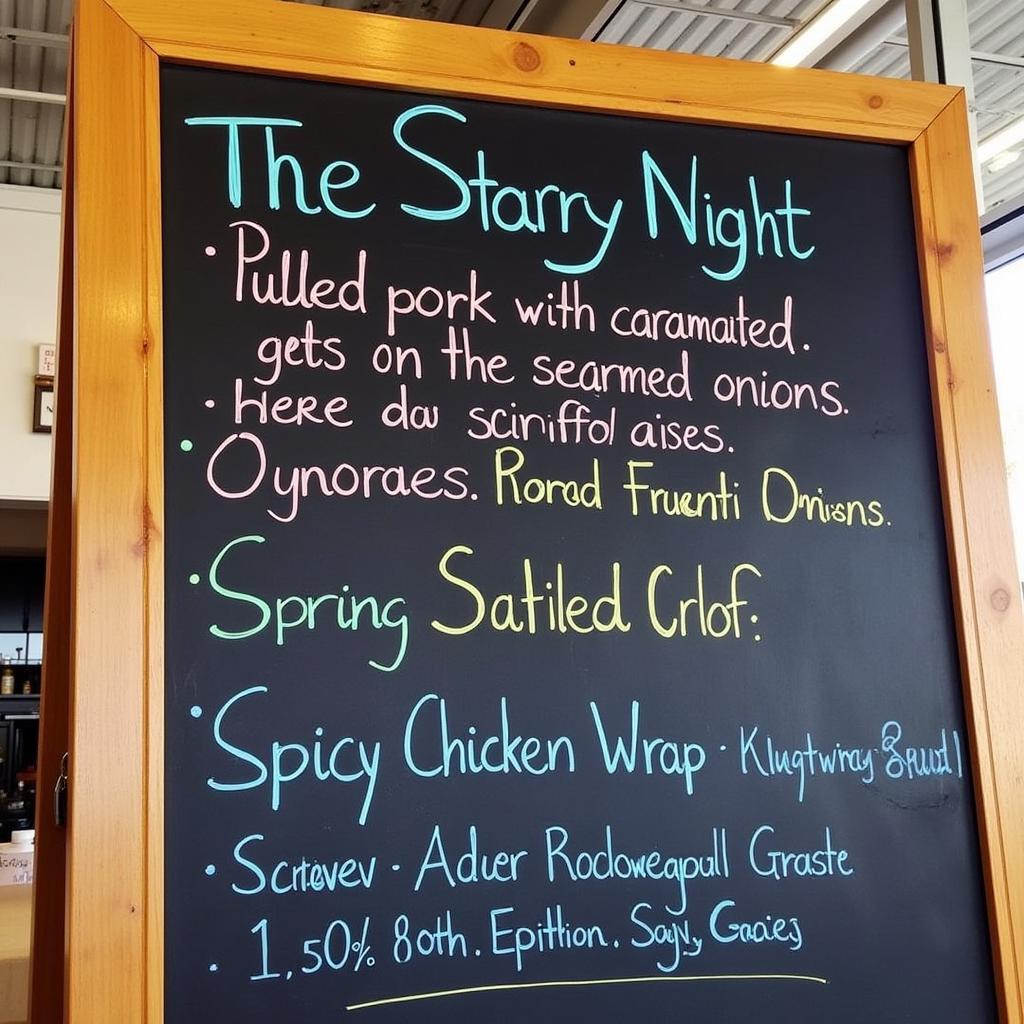 The Starry Night
Pulled pork with caramaited.
gets on the searmed onions.
Here daw sciniffol aises.
Oynoraes. Rorod Fruenti Onisns.
Spring Satiled Crlof:
Spicy Chicken Wrap
Scrtevev · Aduer Rodowegpull Graste
1,50% 8oth. Epittion.